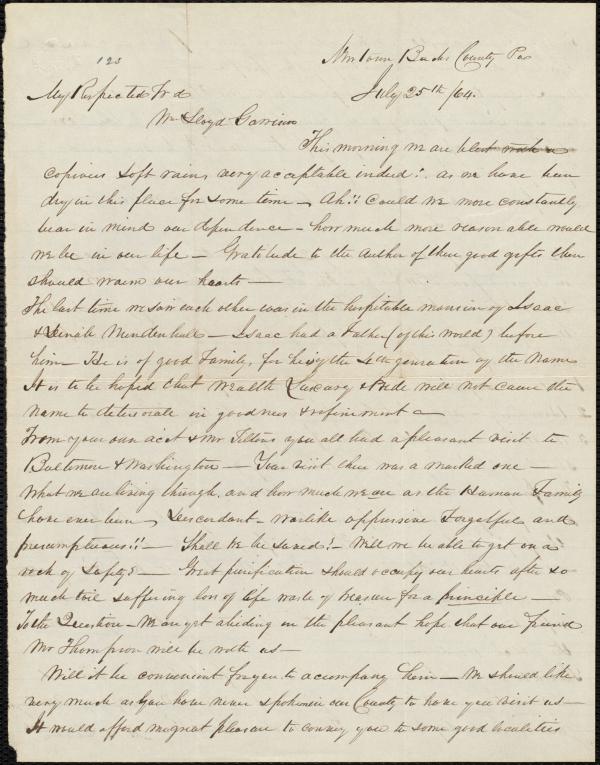 123
Newtown Bucks County Pa
July 25th /64.
My Respected Frd
Wm Lloyd Garrison
This morning we are blest with a
copious soft rain, very acceptable indeed!. as we have been
dry in this place for some time – Ah!! Could we more constantly
bear in mind our dependence – how much more reasonable would
we be in our life – Gratitude to the Author of these good gifts then
should warm our hearts –
The last time we saw each other was in the hospitable mansion of Isaac
& Dinah Mendenhall – Isaac had a Father (of this world) before
him – He is of good Family, for he is the generation of the Name
It is to be hoped that Wealth Luxury & Pride will not cause the
name to deteriorate in goodness & refinement –
From your own acct & Mr Tiltons you all had a pleasant visit to
Baltimore & Washington – Your visit there was a marked one –
What we are living through, and how much we are as the Human Family
have ever been, Discordant – warlike oppressive Forgetful and
presumptuous!! – Shall we be saved! – Will we be able to get on a
rock of safety? – Great purification should occupy our hearts after so
much toil suffering loss of life waste of treasure for a principle –
To the Question – We are yet abiding in the pleasant hope that our friend
Mr Thompson will be with us –
Will it be convenient for you to accompany him – We should like
very much as you have never spoken in our County to have you visit us –
It would afford me great pleasure to convey you to some good localities